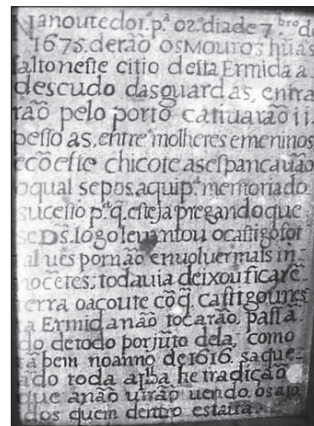 Na noute do 1º. pª 02º. dia de 7.bro de
1675. derão os mouros hũ as
salto neste citio desta Ermida a
descudo das guardas, entra
rão pelo porto catiuarão 11
pessoas, entre molheres e meninos
e cõ este chicote as espancauão
o qual se pos, aqui pª. memoria do
sucesso pª. q̃. esteja pregando que
se Ds. logo leuantou o castigo foi
al ués por não enuoluer mais in
nocẽtes; todauia deixou ficar ẽ
terra o acoute cõ q̃. castigou nes
ta Ermida não tocarão, passã
do de todo por jũto dela, como
tã bem no anno de 1616. saque
ado toda a Ilhª he tradição
que a não uirão uendo, os a to
dos quem dentro estaua.